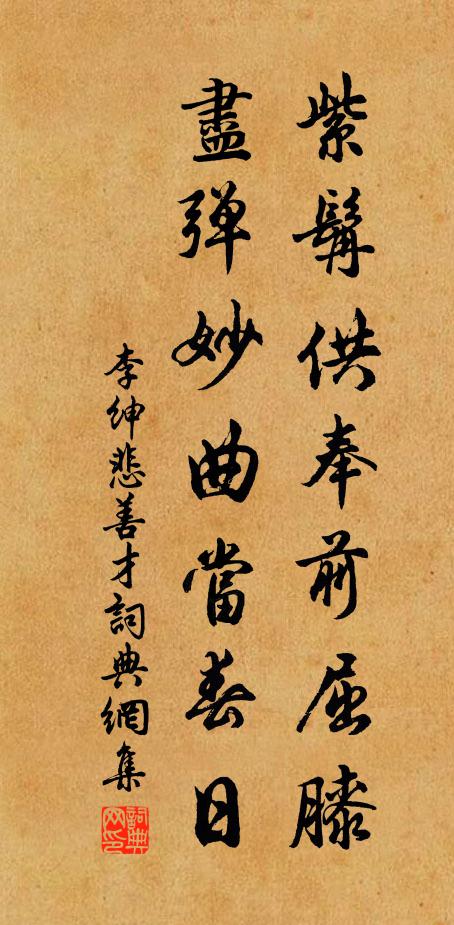 紫髯供奉前屈膝
盡彈妙曲當春日
李紳悲善才詞典網集
詞典
网印